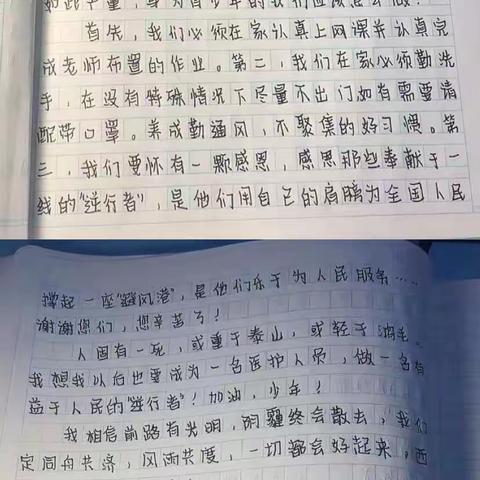 如此严重，身为青少年的我们应该怎么做？
首先，我们必须在家认真上网课并认真完
成老师布置的作业。第二，我们在家必须勤洗
手，在没有特殊情况下尽量不出门如有需要请
配带口罩。养成勤通风，不聚集的好习惯。第
三，我们要怀有一颗感恩，感恩那些奉献于一
线的"逆行者"，是他们用自己的肩膀为全国人民
撑起一座"避风港"，是他们乐于为人民服务……
谢谢您们，您辛苦了！
人固有一死，或重于泰山，或轻于鸿毛。
我想我以后也要成为一名医护人员，做一名有
益于人民的"逆行者"！加油，少年！
我相信前路有光明，阴霾终会散去，我们
定同舟共济，风雨共度，一切都会好起来，西